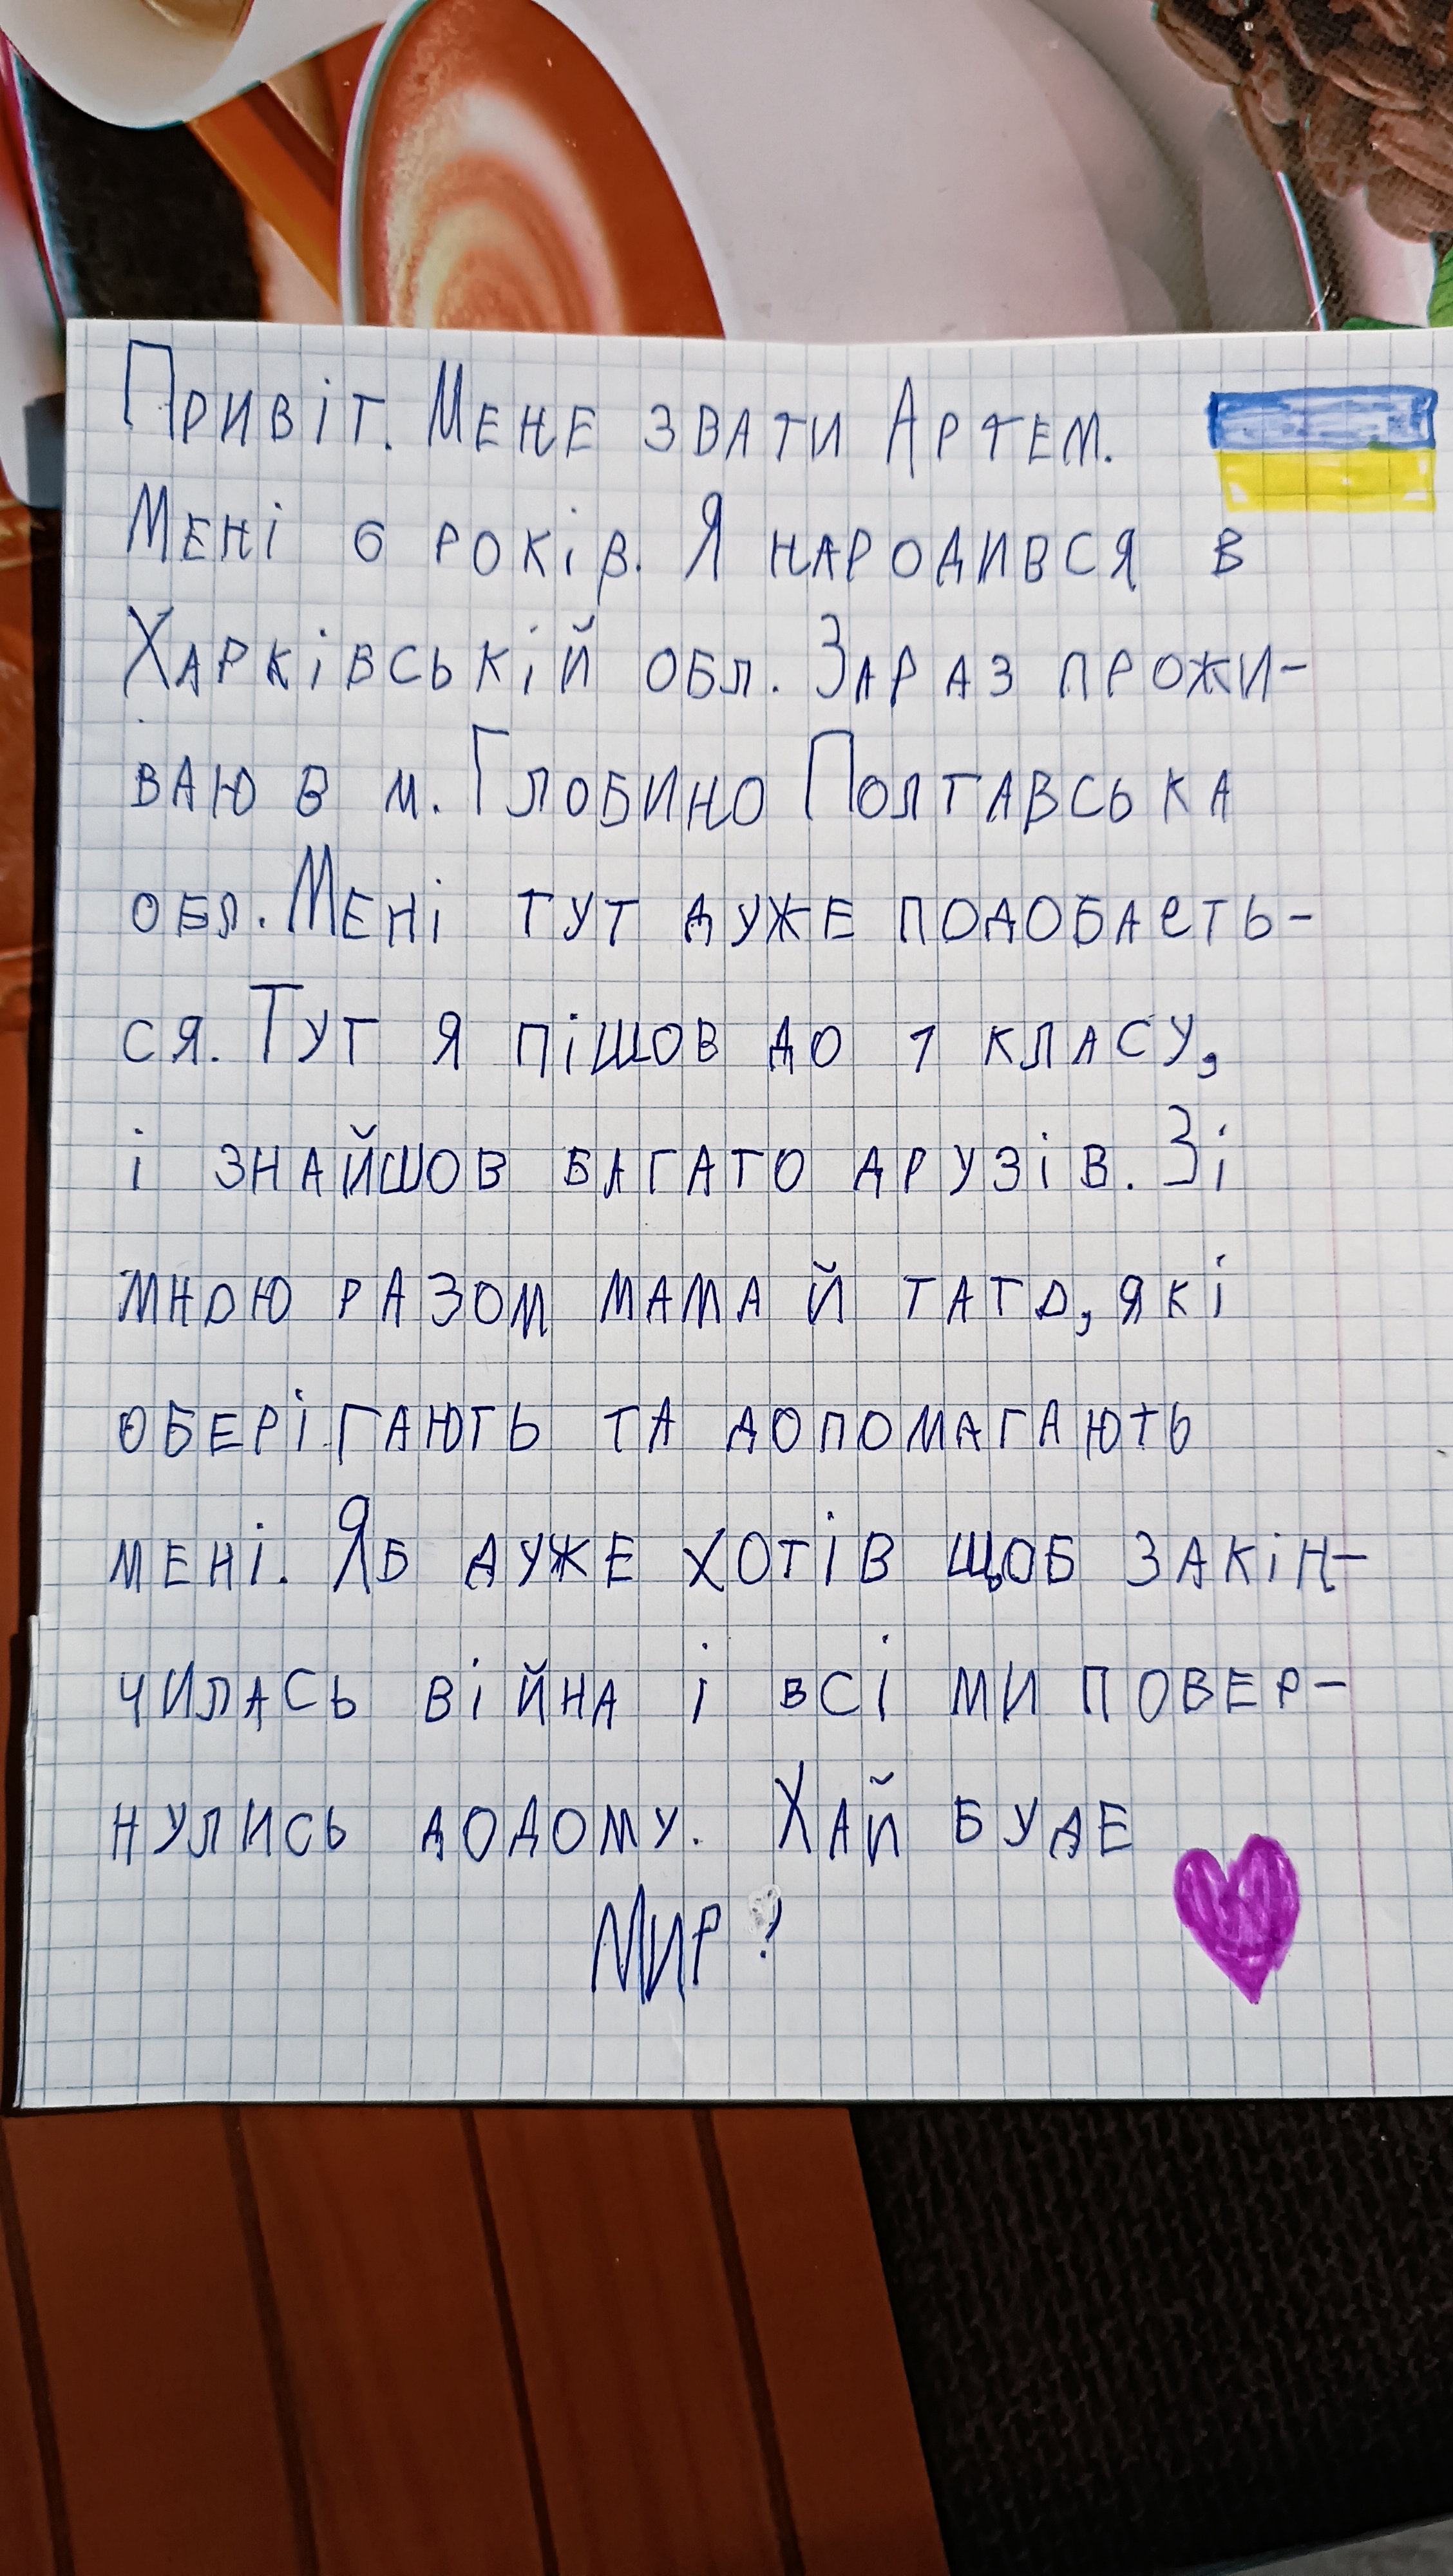 Привіт. Мене звати Артем.
Мені 6 років. Я народився в
Харківській обл. Зараз прожи-
ваю в м. Глобино Полтавська
обл. Мені тут дуже подобаєть-
ся. Тут я пішов до 1 класу,
і знайшов багато друзів. Зі
мною разом мама й тато, які
оберігають та допомагають
мені. Яб дуже хотів щоб закін-
чилась війна і всі ми повер-
нулись додому. Хай буде
Мир?